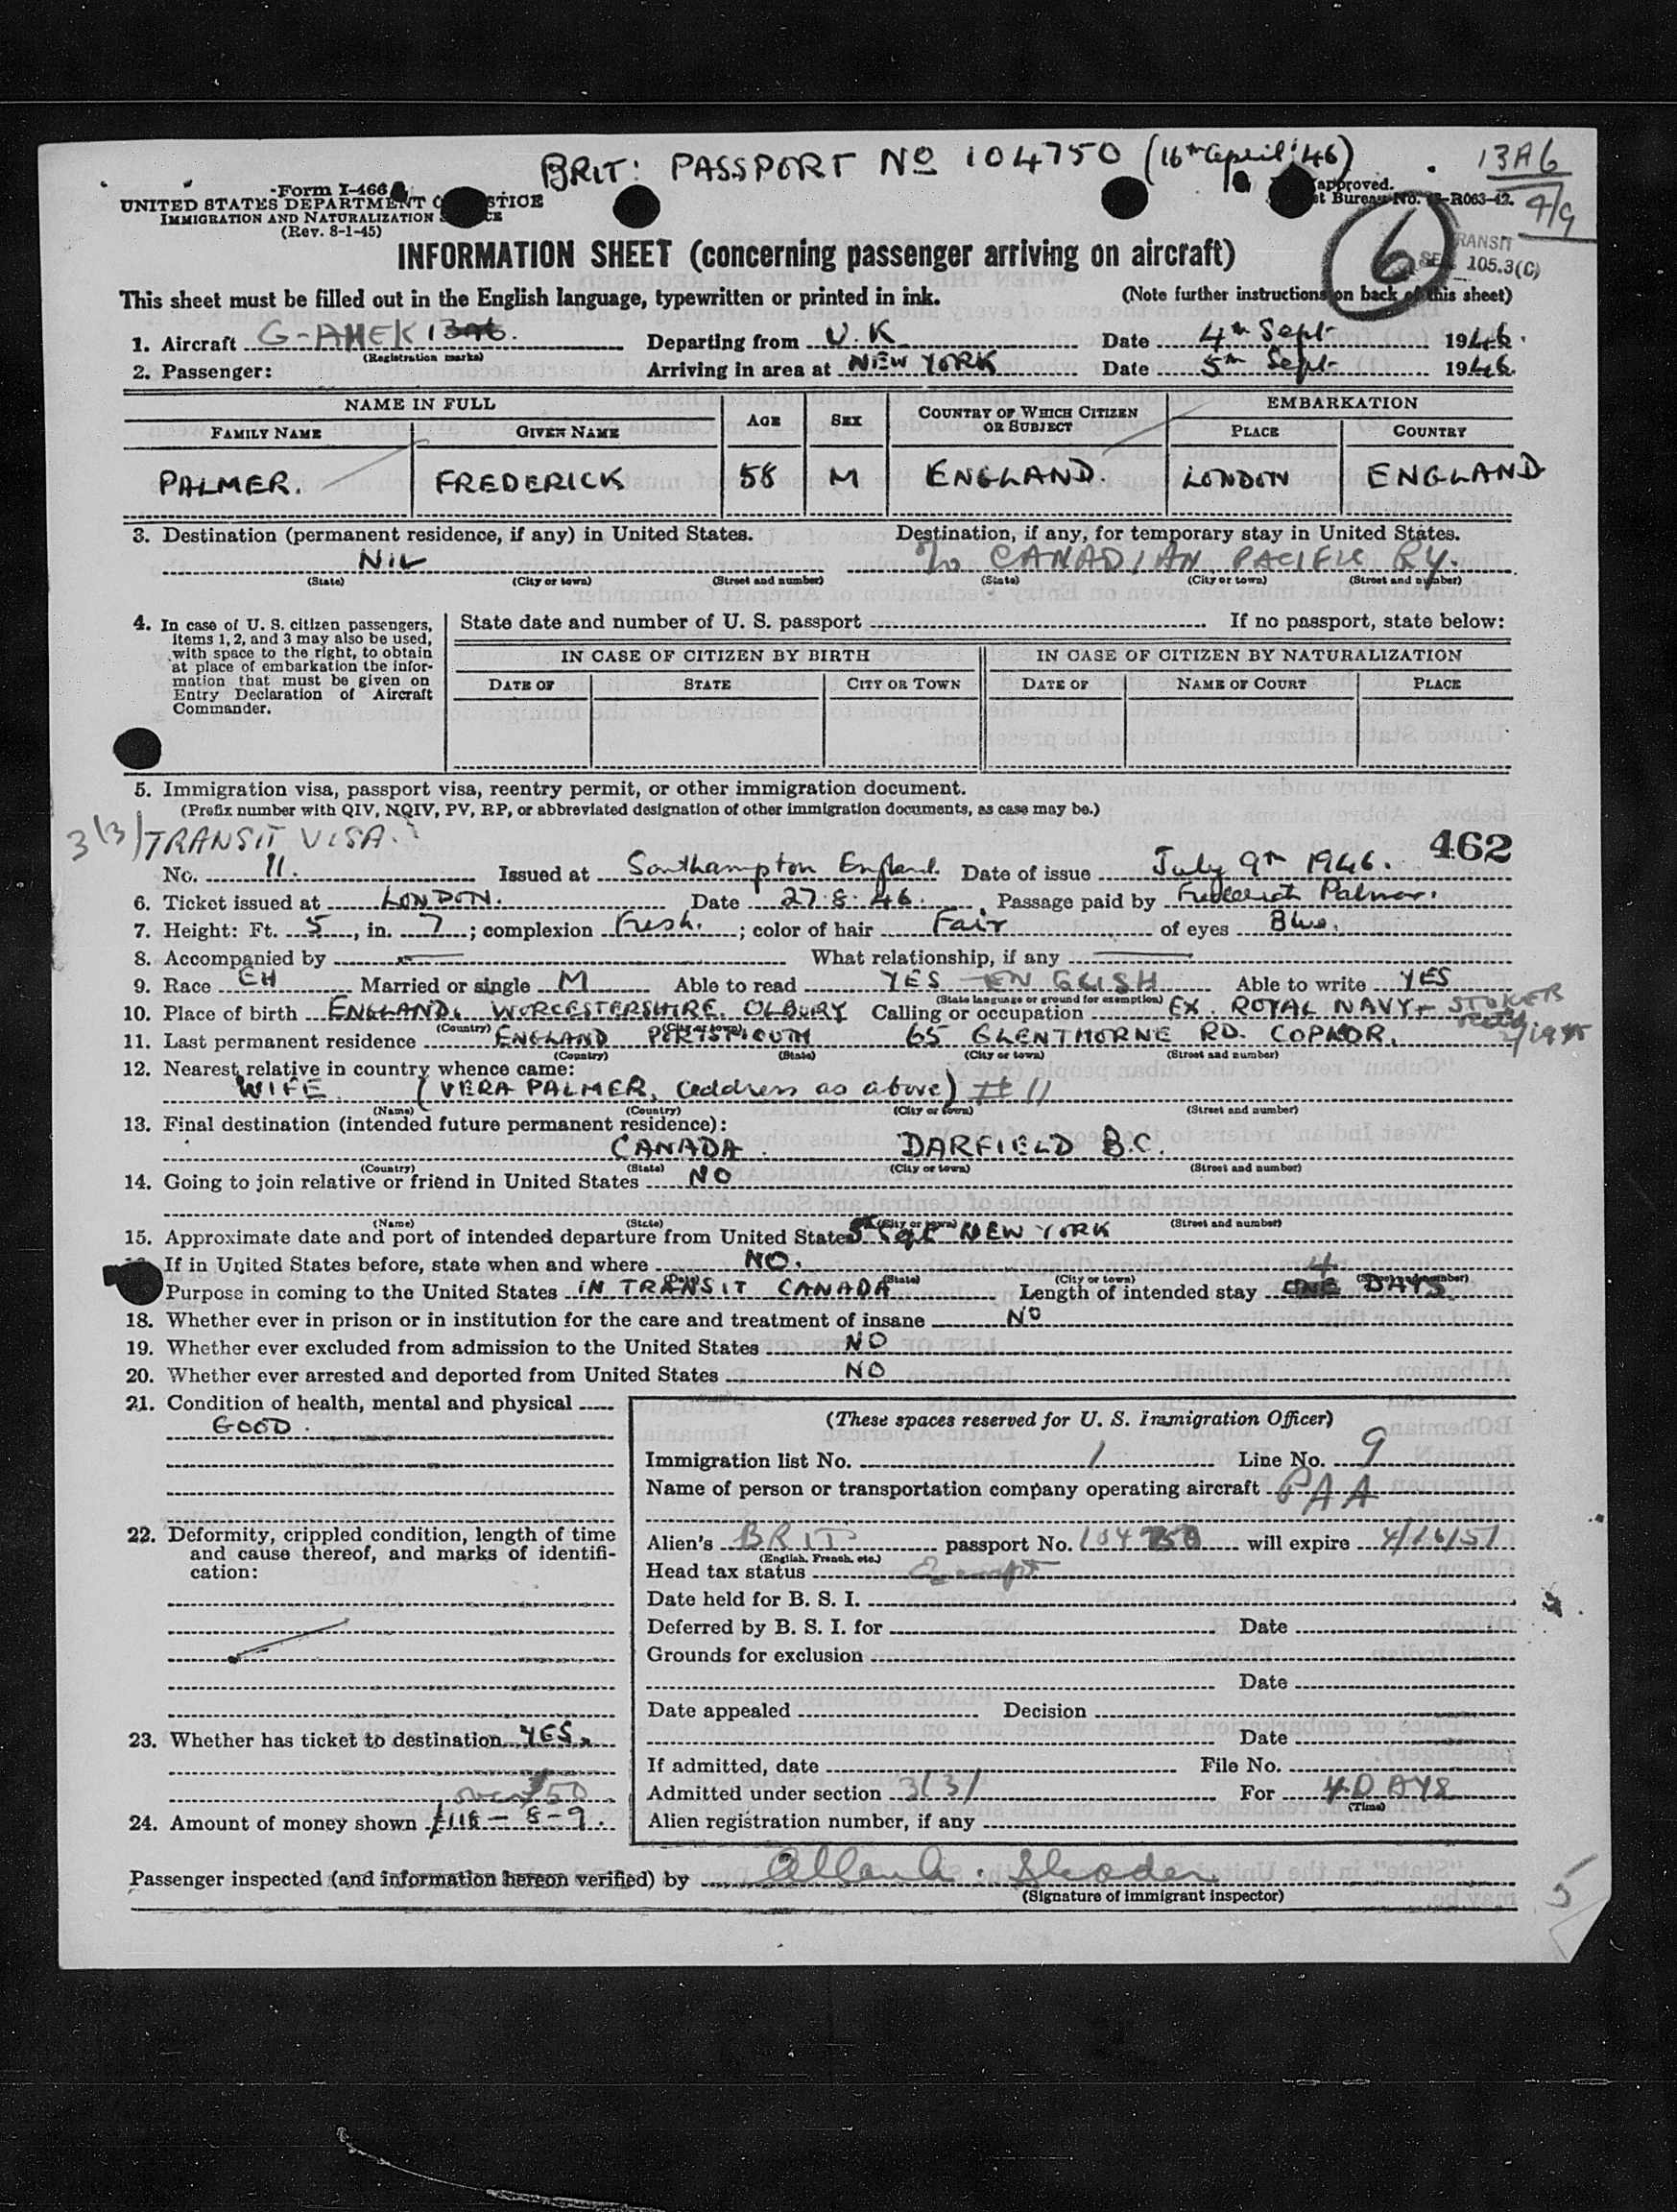 BRIT: PASSPORT No 104750 (16th April '46)
13A6
4/9
Form I-466
UNITED STATES DEPARTMENT OF JUSTICE
IMMIGRATION AND NATURALIZATION SERVICE
(Rev. 8-1-45)
approved.
Bureau No. R063-42.
6
TRANSIT
SEC. 105.3(C)
INFORMATION SHEET (concerning passenger arriving on aircraft)
This sheet must be filled out in the English language, typewritten or printed in ink. (Note further instructions on back of this sheet)
1. Aircraft G-AHEK Departing from U.K Date 4th Sept 1946.
(Registration marks)
2. Passenger: Arriving in area at NEW YORK Date 5th Sept 1946.
NAME IN FULL AGE SEX COUNTRY OF WHICH CITIZEN OR SUBJECT EMBARKATION
FAMILY NAME GIVEN NAME PLACE COUNTRY
PALMER. FREDERICK 58 M ENGLAND. LONDON ENGLAND
3. Destination (permanent residence, if any) in United States. Destination, if any, for temporary stay in United States.
NIL c/o CANADIAN PACIFIC RY.
(State) (City or town) (Street and number) (State) (City or town) (Street and number)
4. In case of U. S. citizen passengers, items 1, 2, and 3 may also be used, with space to the right, to obtain at place of embarkation the information that must be given on Entry Declaration of Aircraft Commander.
State date and number of U. S. passport If no passport, state below:
IN CASE OF CITIZEN BY BIRTH IN CASE OF CITIZEN BY NATURALIZATION
DATE OF STATE CITY OR TOWN DATE OF NAME OF COURT PLACE
5. Immigration visa, passport visa, reentry permit, or other immigration document.
(Prefix number with QIV, NQIV, PV, RP, or abbreviated designation of other immigration documents, as case may be.)
3(3) TRANSIT VISA. 462
No. 11. Issued at Southampton England. Date of issue July 9th 1946.
6. Ticket issued at LONDON. Date 27.8.46. Passage paid by Frederick Palmer.
7. Height: Ft. 5, in. 7; complexion Fresh.; color of hair Fair of eyes Blue.
8. Accompanied by What relationship, if any
9. Race EH Married or single M Able to read YES ENGLISH Able to write YES
(State language or ground for exemption)
10. Place of birth ENGLAND. WORCESTERSHIRE. OLBURY Calling or occupation EX. ROYAL NAVY - STOKER
(Country) (City or town)
11. Last permanent residence ENGLAND PORTSMOUTH 65 GLENTHORNE RD. COPNOR.
(Country) (State) (City or town) (Street and number)
12. Nearest relative in country whence came:
WIFE. (VERA PALMER, address as above) # 11
(Name) (Country) (City or town) (Street and number)
13. Final destination (intended future permanent residence):
CANADA. DARFIELD B.C.
(Country) (State) (City or town) (Street and number)
14. Going to join relative or friend in United States NO
(Name) (State) (City or town) (Street and number)
15. Approximate date and port of intended departure from United States 5th Sept NEW YORK
If in United States before, state when and where NO.
(State) (City or town) (Street and number)
Purpose in coming to the United States IN TRANSIT CANADA Length of intended stay 4 DAYS
18. Whether ever in prison or in institution for the care and treatment of insane NO
19. Whether ever excluded from admission to the United States NO
20. Whether ever arrested and deported from United States NO
21. Condition of health, mental and physical
GOOD.
22. Deformity, crippled condition, length of time and cause thereof, and marks of identification:
23. Whether has ticket to destination YES.
over $50
24. Amount of money shown £118-8-9.
(These spaces reserved for U. S. Immigration Officer)
Immigration list No. 1 Line No. 9
Name of person or transportation company operating aircraft PAA
Alien's BRIT passport No. 104750 will expire 4/16/51
(English, French, etc.)
Head tax status Exempt
Date held for B. S. I.
Deferred by B. S. I. for Date
Grounds for exclusion
Date
Date appealed Decision
Date
If admitted, date File No.
Admitted under section 3(3) For 4 DAYS
(Time)
Alien registration number, if any
Passenger inspected (and information hereon verified) by
(Signature of immigrant inspector)
5